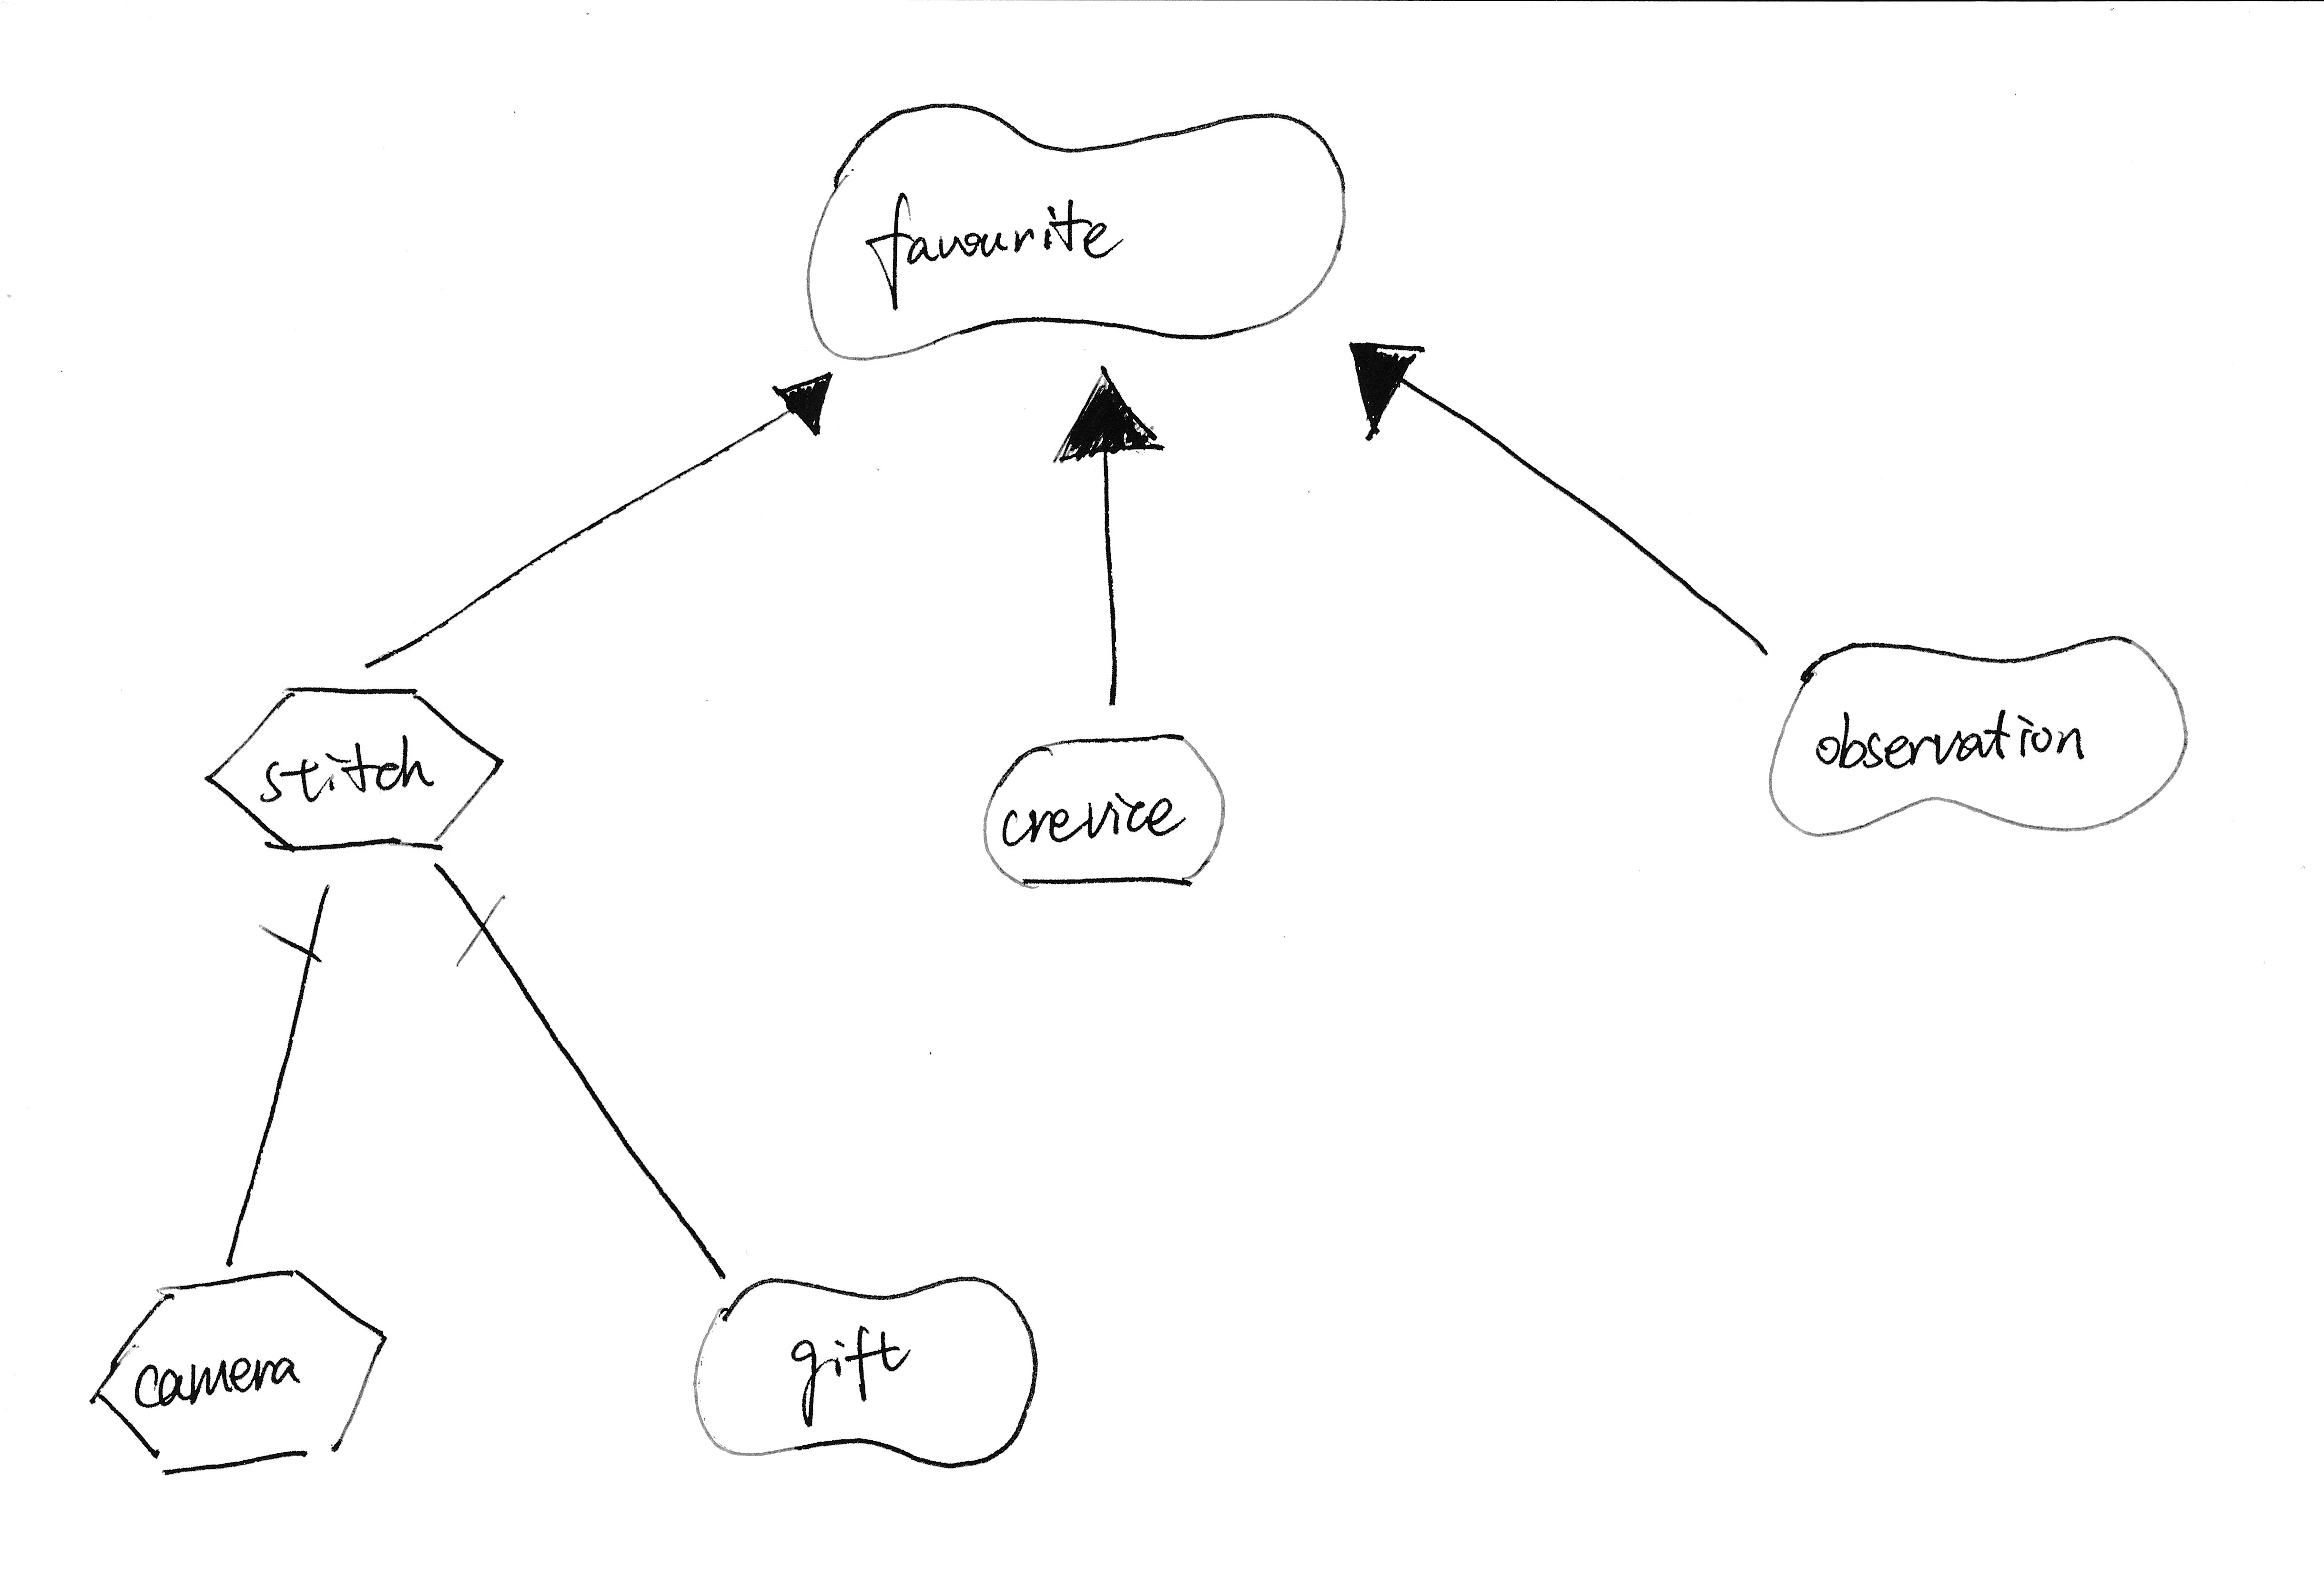 favourite
stitch
crevice
observation
camera
gift